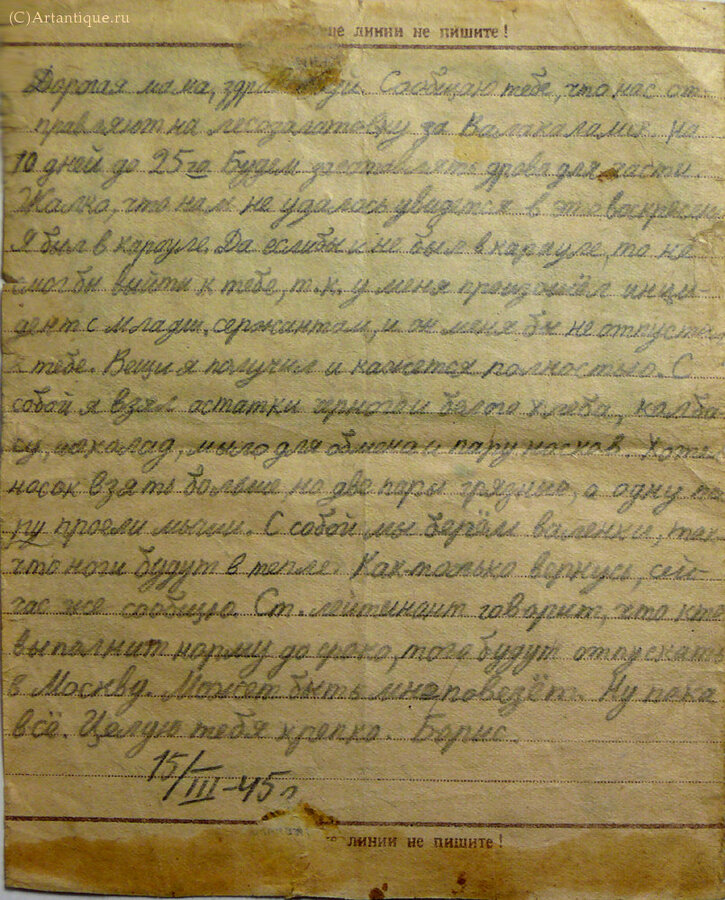 (C)Artantique.ru
линии не пишите!
Дорогая мама, Сообщаю тебе, что нас от-
правляют на лесозаготовку за Валакаламск. На
10 дней до 25го Будем дрова для части.
Жалко, что нам не удалось увидется в это воскресенье
Я был в карауле. Да если бы и не был в карауле, то не
смог бы выйти к тебе, т.к. у меня произошёл инци-
дент с младш. сержантам, и он меня бы не отпустил
к тебе. Вещи я получил и кажется полностью. С
собой я взял остатки чёрного и белого хлеба, калба
су, шоколад, мыло для обмена и пару носков. Хотел
носок взять больше но две пары грязные, а одну па
ру проели мыши. С собой мы берём валенки, так
что ноги будут в тепле. Как только вернусь, сей-
час же сообщю. Ст. лейтинант говорит, что кто
выполнит норму до срока, того будут отпускать
в Москву. Может быть мне повезёт. Ну пока
всё. Целую тебя крепко. Борис.
15/III-45г
линии не пишите!